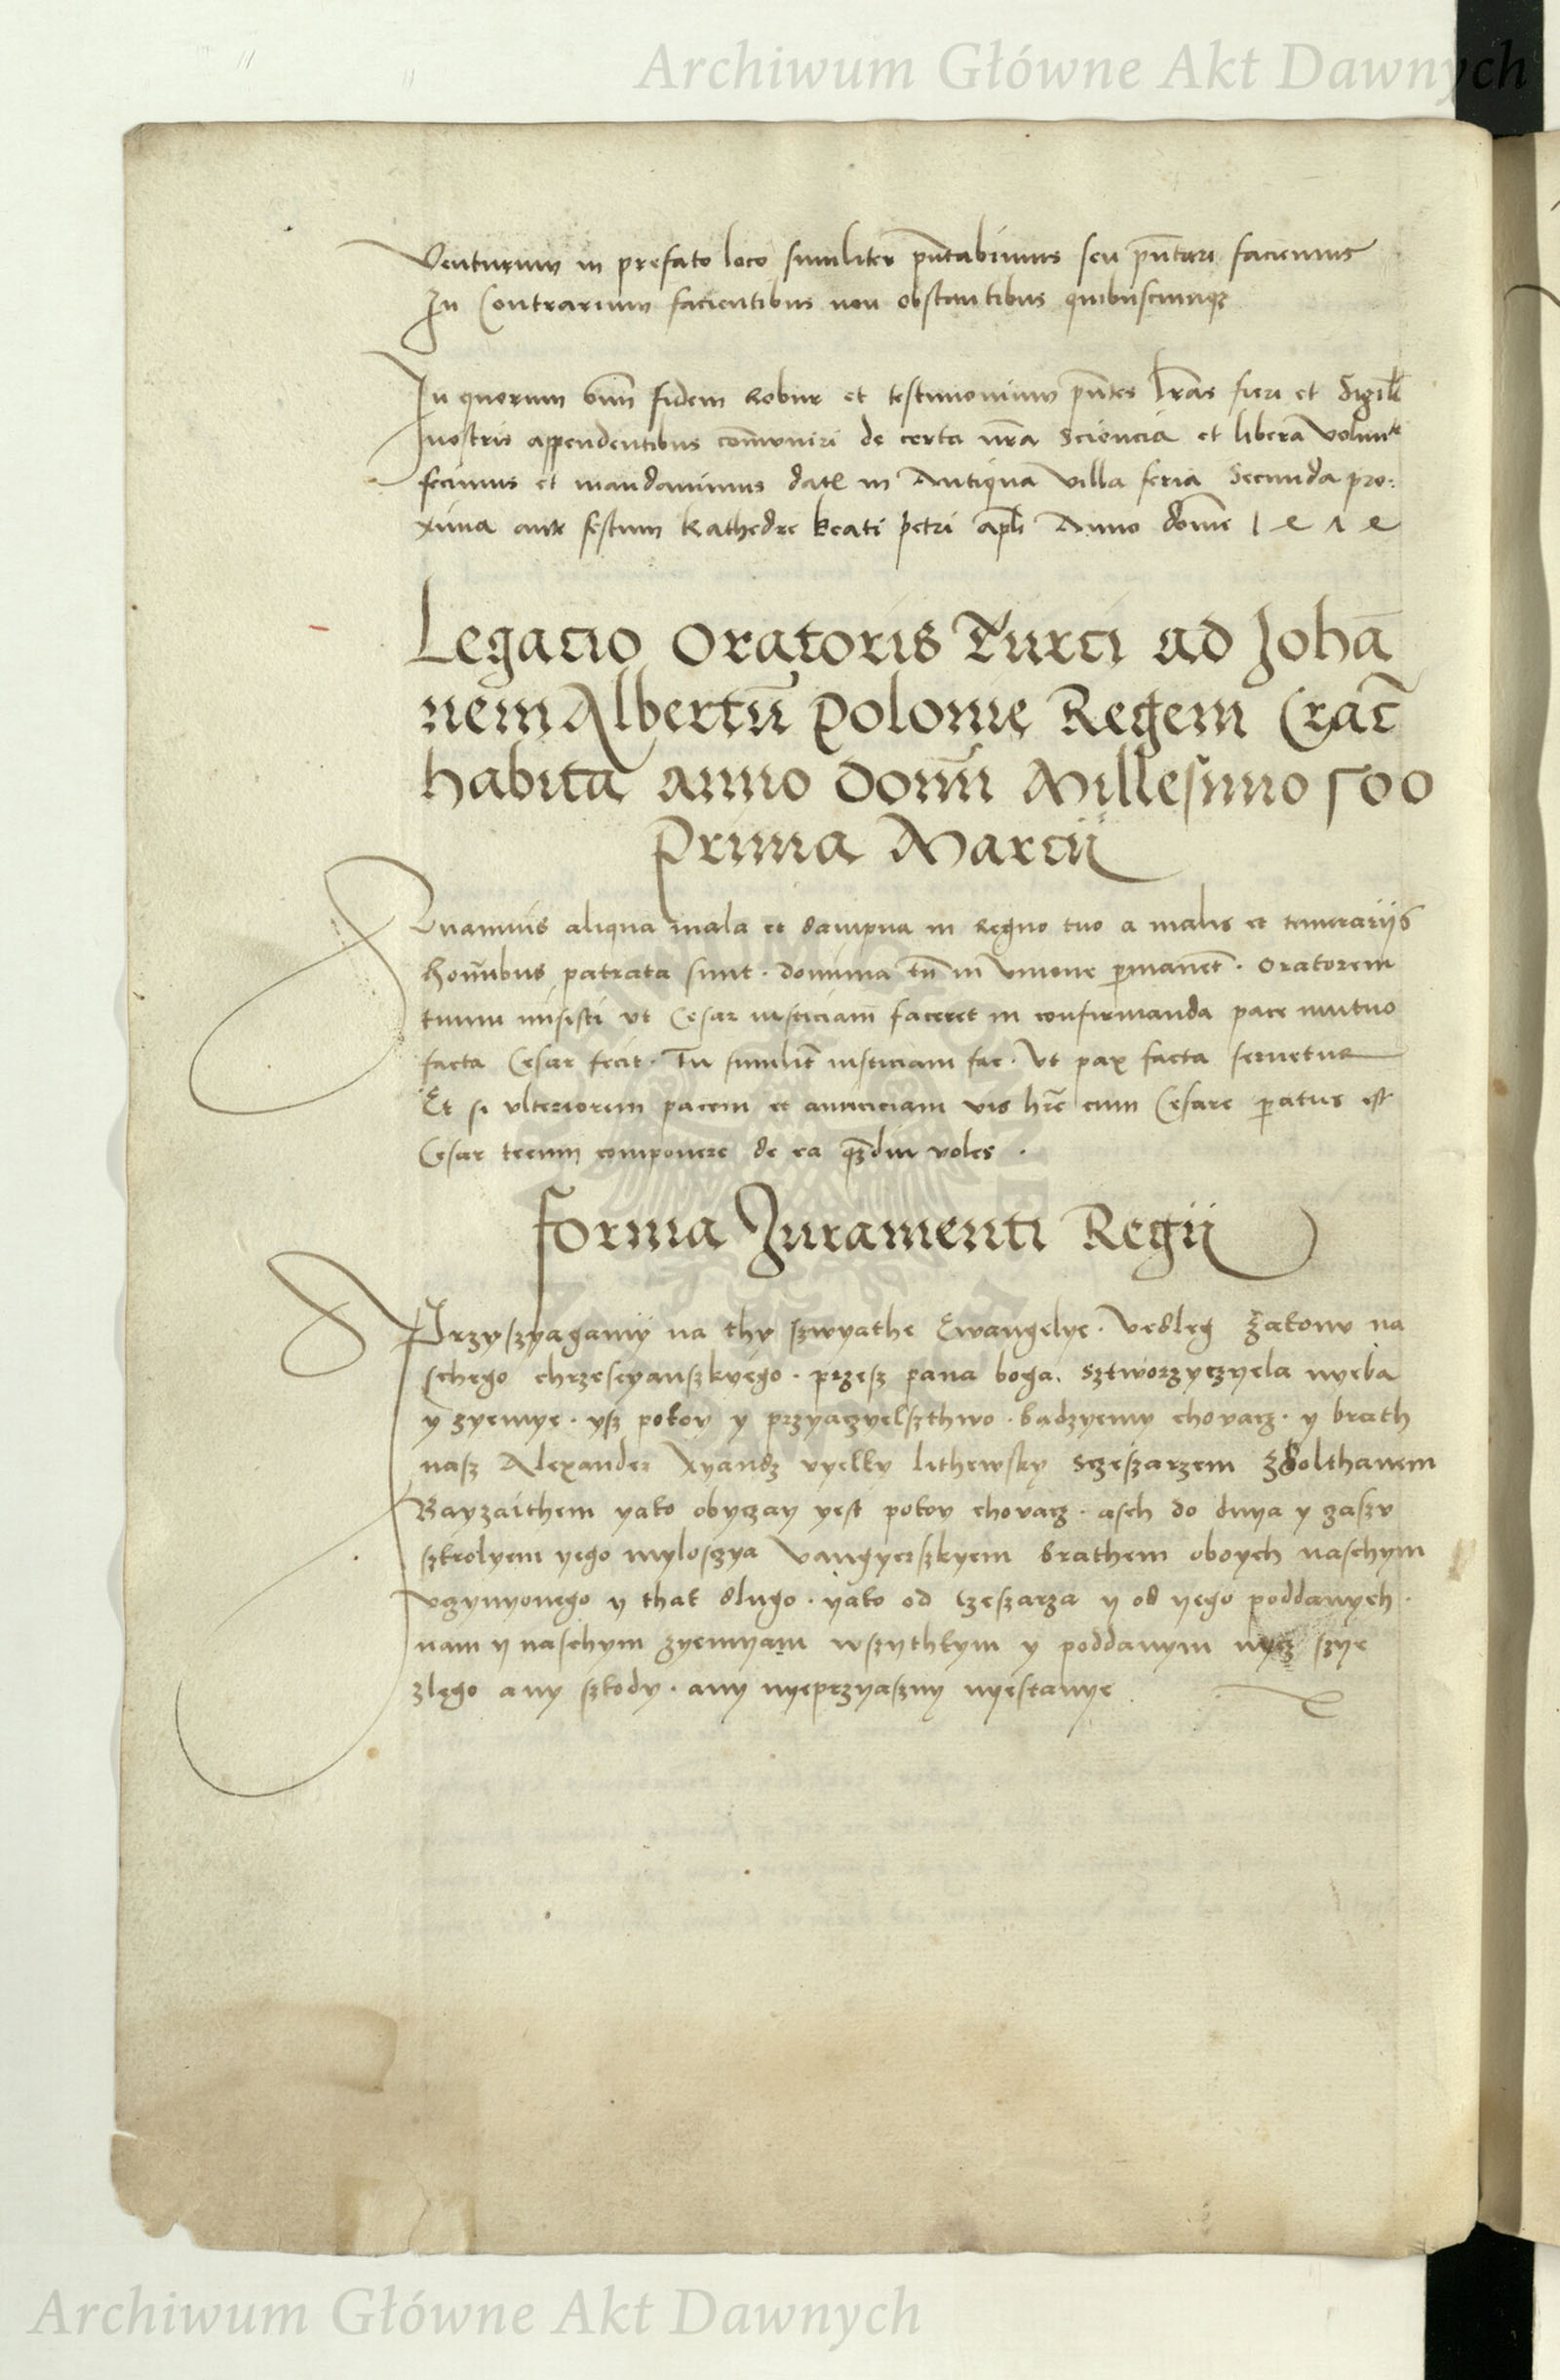 Archiwum Główne Akt Dawnych
Venturum in prefato loco similiter pñtabimus seu pñtari faciemus
In Contrarium facientibus non obstantibus quibuscunqꝫ
In quorum oīm fidem Robur et testimonium pñtes lr̃as fieri et Sigil̃l
nostris appendentibus com̃uniri de certa nr̃a Sciencia et libera volunte
fecimus et mandavimus dat̃ in Antiqua villa feria Secunda pro:
xima ante festum Kathedre beati petri apl̃i Anno dom̃i
Legacio Oratoris Turci ad Johā
nem Albertū Polonie Regem Crac̃
habita anno Domī Millesimo 500
Prima Marcij
Quamvis aliqua mala et dampna in Regno tuo a malis et temerarijs
hom̄ibus patrata sunt · domina tn̄ in Unione p̲maneñt · Oratorem
tuum misisti vt Cesar iusticiam̄ faceret in confirmanda pace mutuo
facta Cesar fecit · Tu similit̃ iusticiam fac · Vt pax facta servetur
Et si vlteriorem pacem et amiciciam vis hr̃e cum Cesare p̲atus est
Cesar tecum componere de ea qꝫdiu voles ·
Forma Juramenti Regij
Przyszyagamÿ na thy szwyathe Ewangelye · Vedleg zakonv na
schego chrzescyanszkyego · przesz pana boga · sztworzyczyela nyeba
y zyemye · ysz pokoy y przyaczyelszthwo · badzyemy chovacz · y brath
nasz Alexander Xyandz vyelky lithewsky Sczeszarzem zSolthanem
Bayzaithem yako obyczay yest pokoy chovacz · asch do dnya y zaszv
szkrolyem yego myloszya Vangyerszkyem brathem oboych naschym
vczynyonego y thak dlugo · yako od Czeszarza y od yego poddanych ·
nam y naschym zyemyam wszythkym y poddanym nycz szye
zlego any szkody · any nyeprzyaszny nyestanye
Archiwum Główne Akt Dawnych